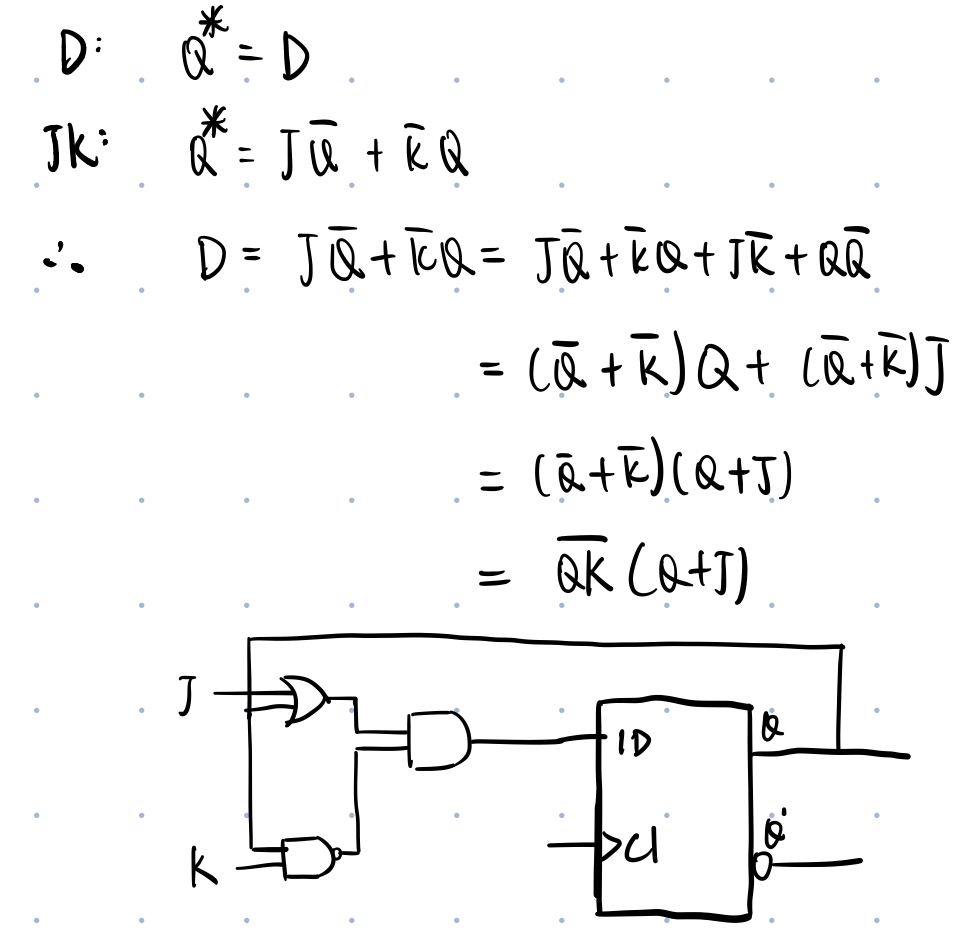 D: Q* = D
JK: Q* = JQ̅ + K̅Q
∴ D = JQ̅ + K̅Q = JQ̅ + K̅Q + JK̅ + QQ̅
= (Q̅ + K̅)Q + (Q̅ + K̅)J
= (Q̅ + K̅)(Q + J)
= Q̅K̅ (Q + J)
J
Q
1D
Q'
C1
K